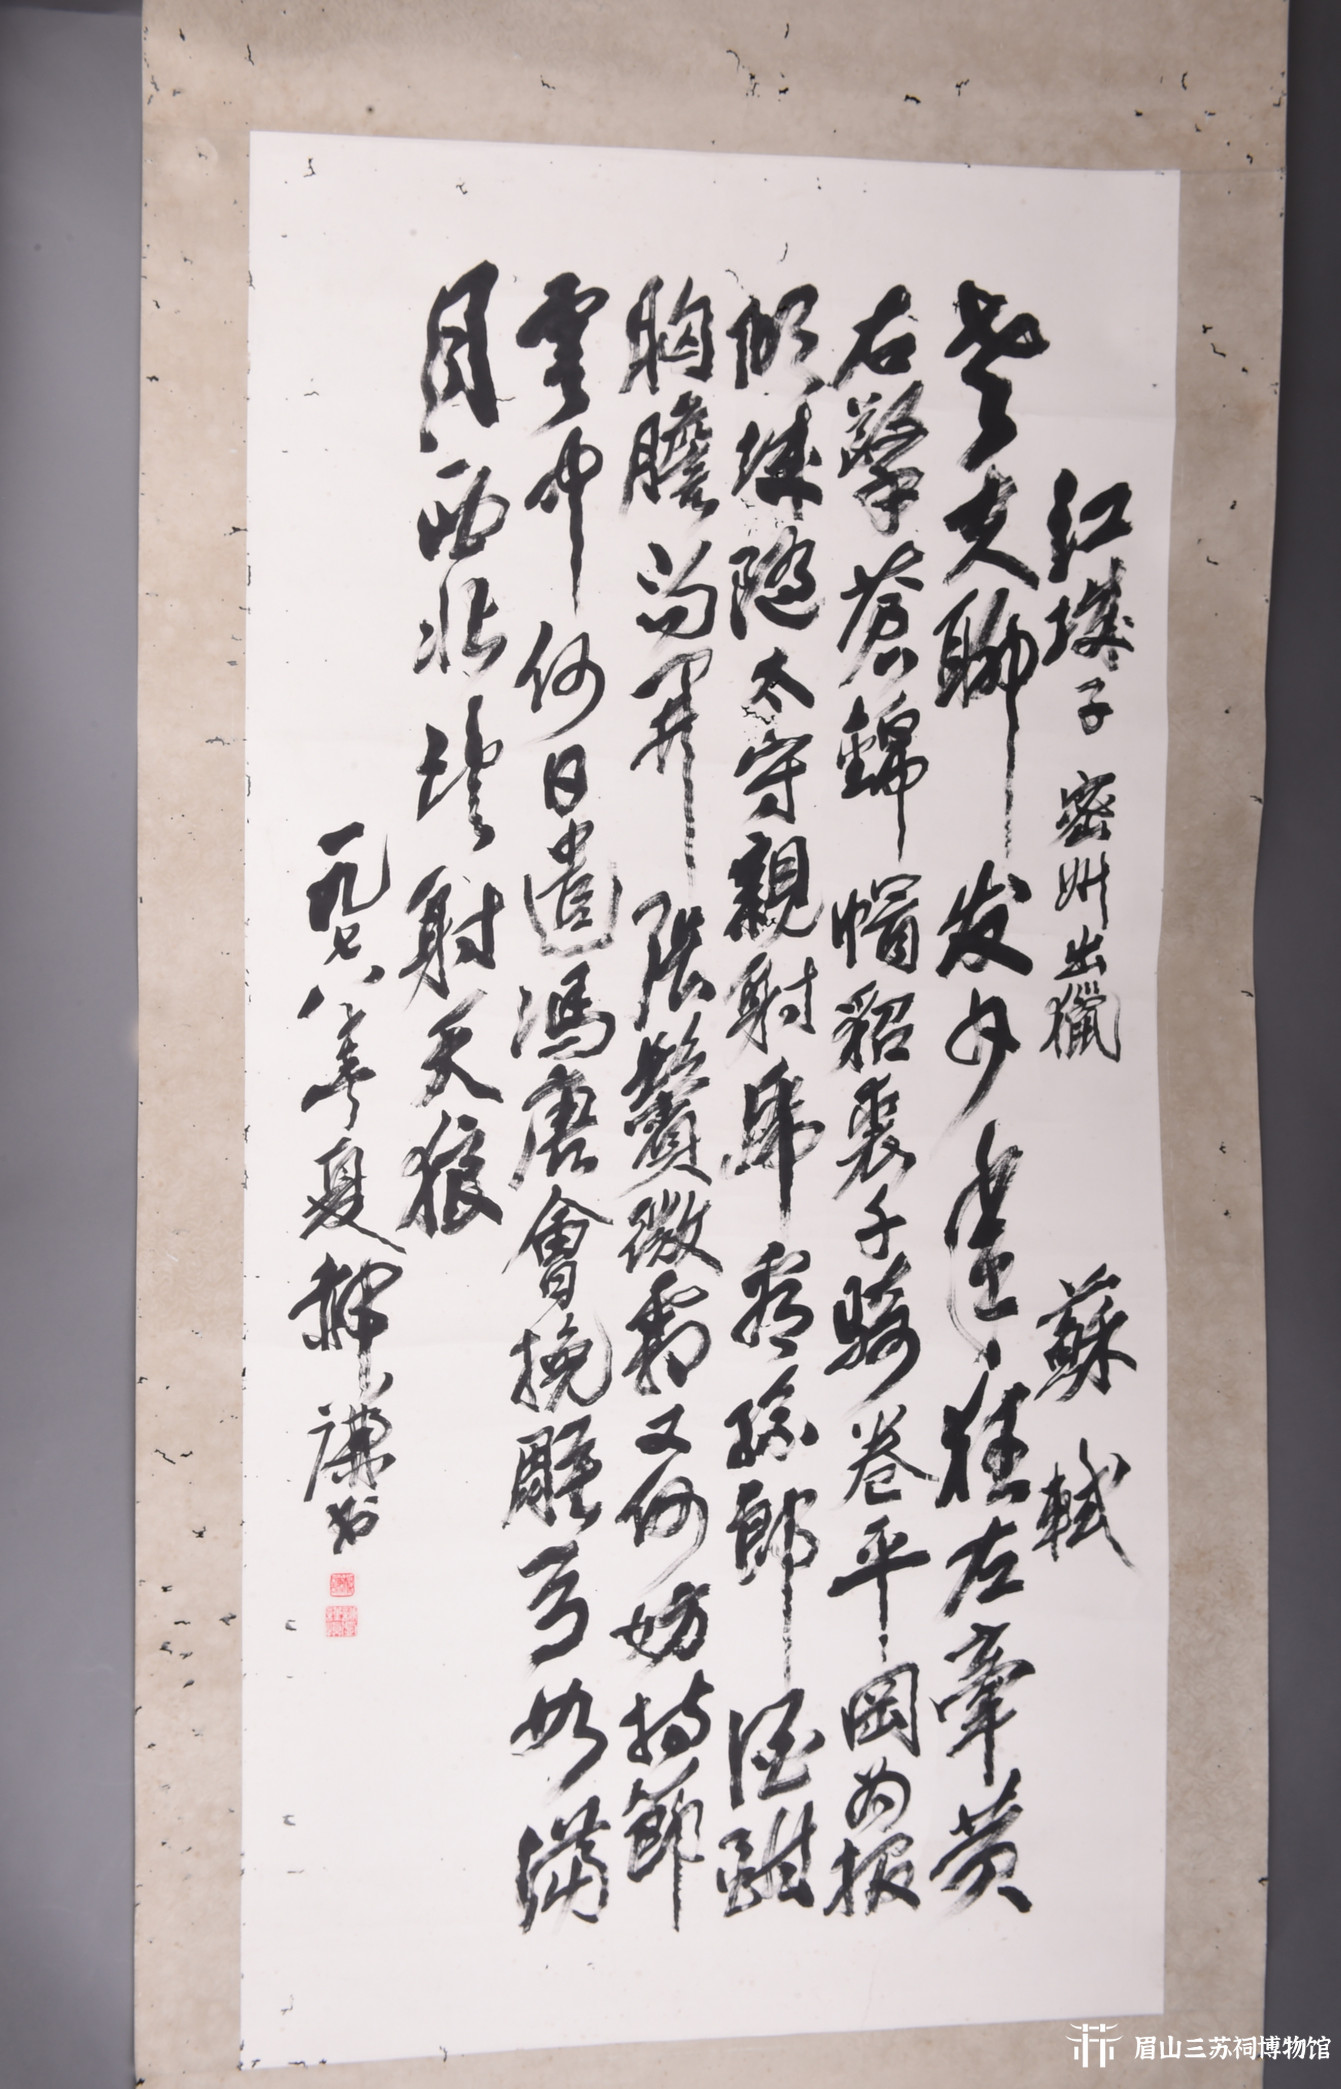 江城子 密州出獵 蘇軾
老夫聊发少年狂左牽黄
右擎蒼錦帽貂裘千騎卷平岡为报
傾城随太守親射虎看孫郎酒酣
胸膽尚开張鬢微霜又何妨持節
雲中何日遣馮唐會挽雕弓如满
月西北望射天狼
一九七八年夏 謙书
眉山三苏祠博物馆